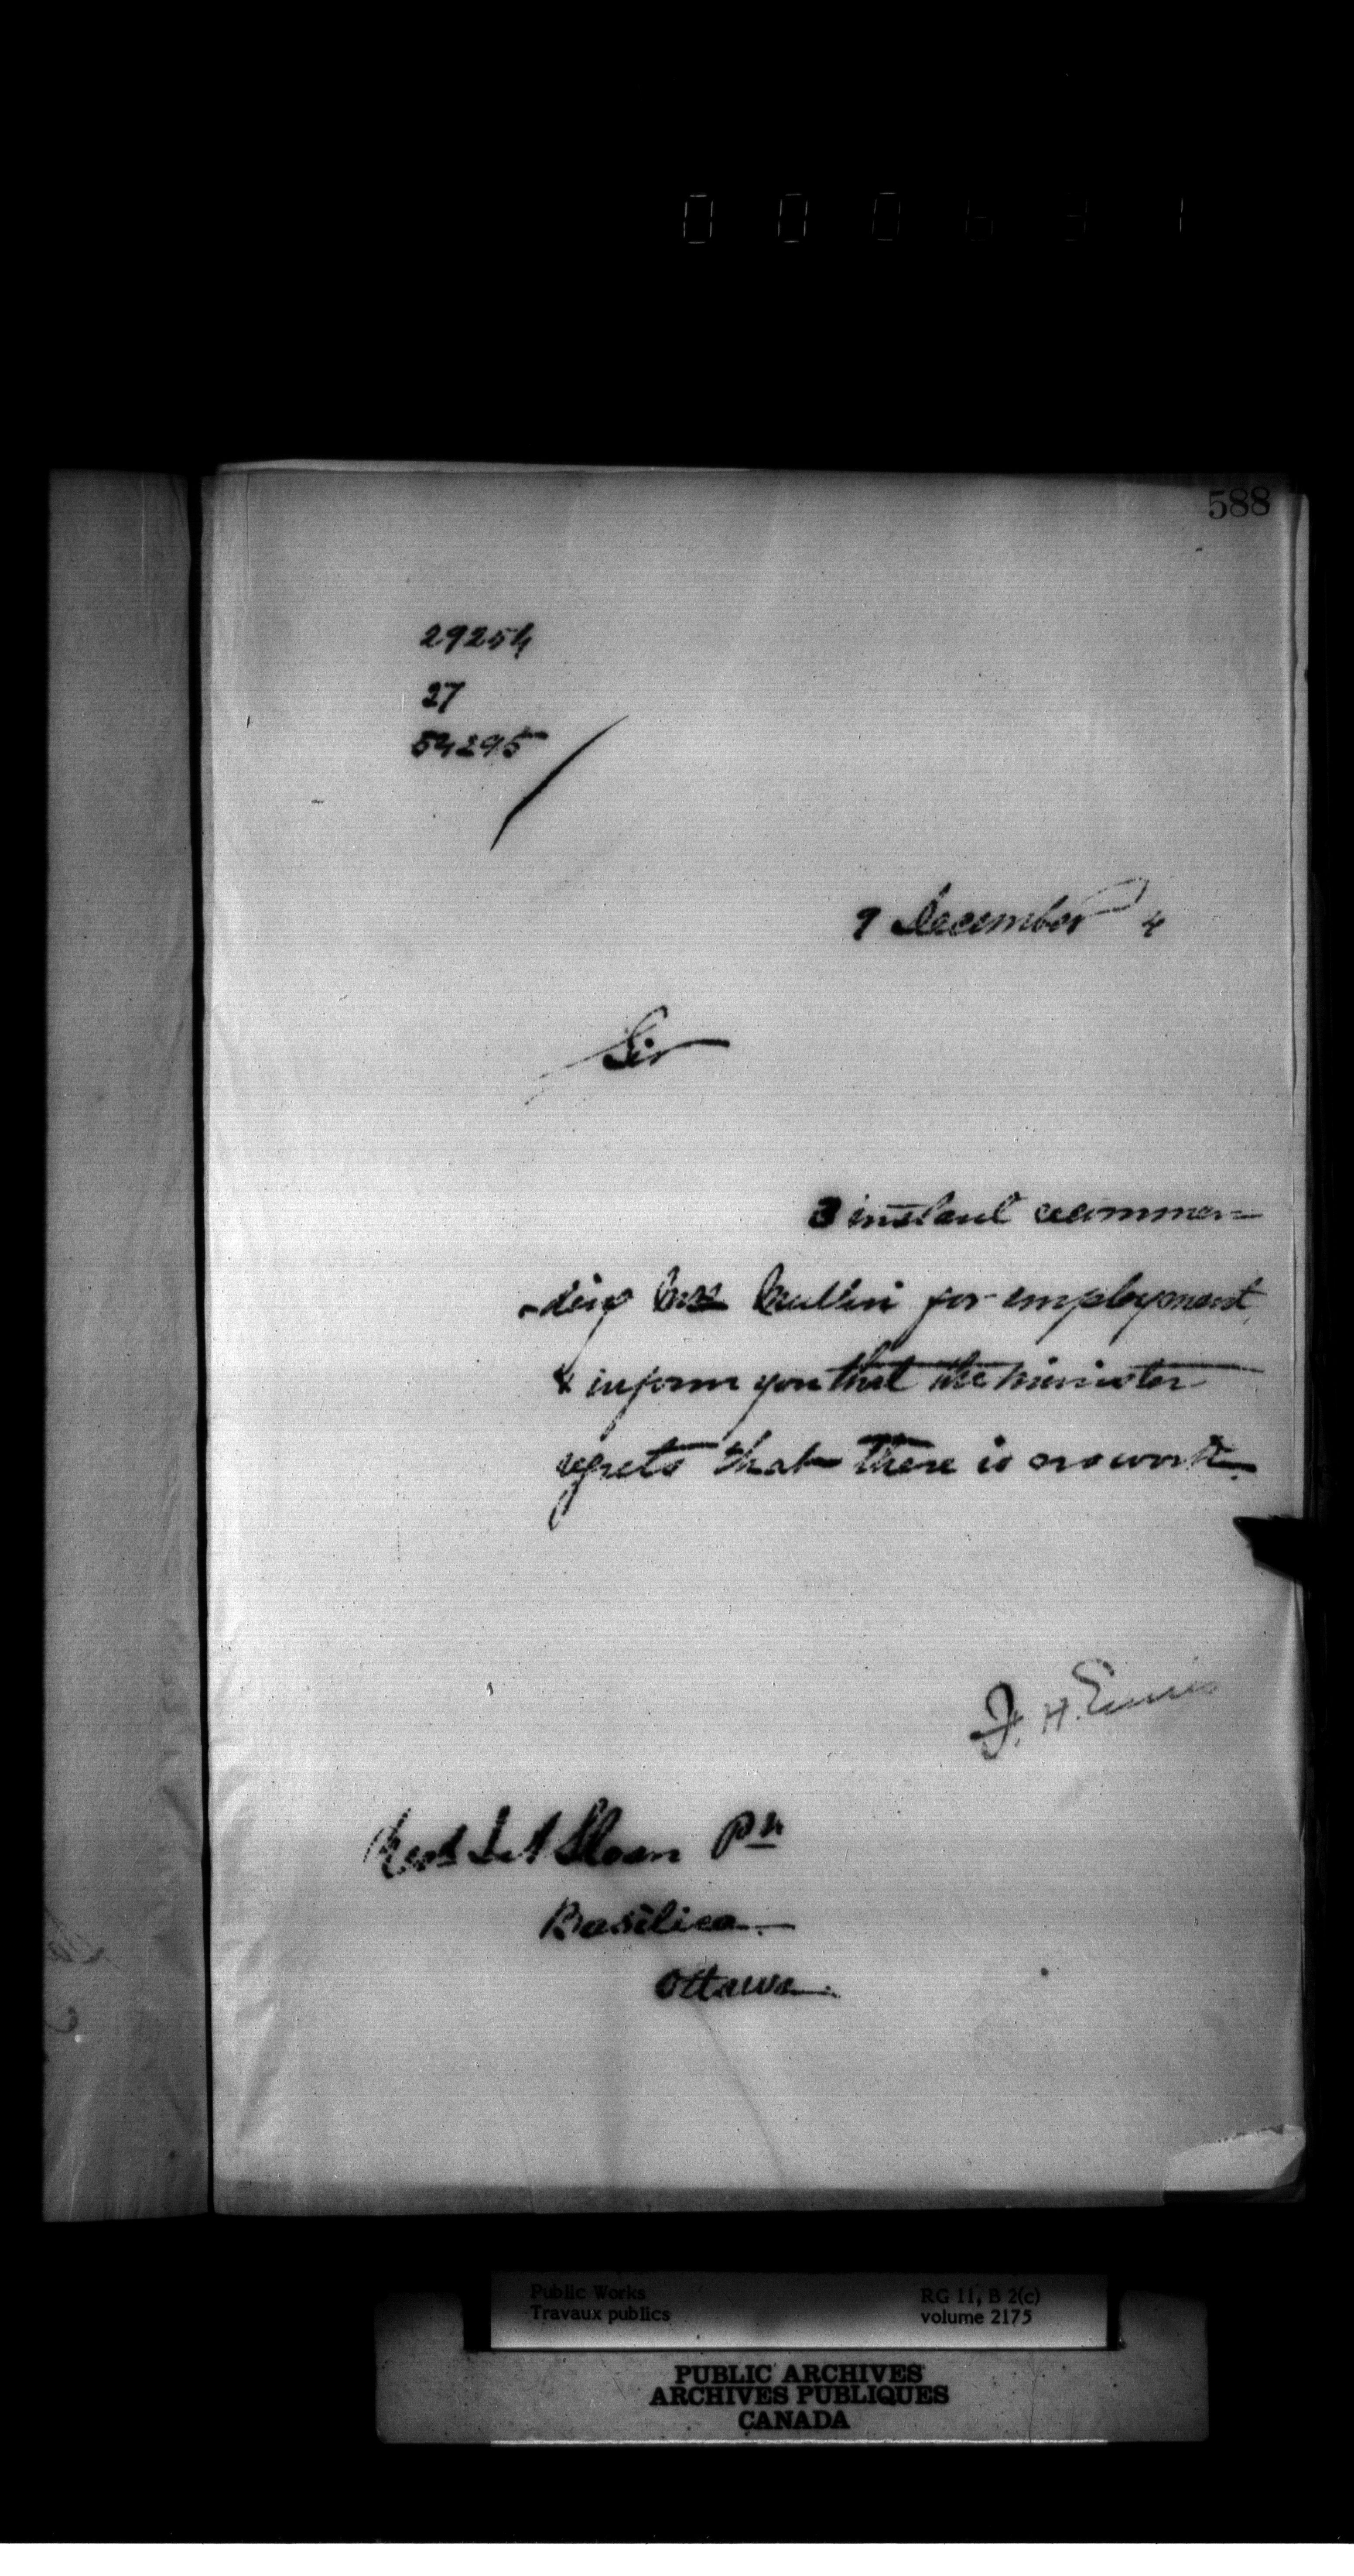 588
29254
27
54295
9 December 4
Sir
3 instant recommen=
-ding Mrs for employment,
& inform you that the Minister
regrets that there is no work.
F. H. Ennis
Revd Sloan Ptr
Basilica
Ottawa
Public Works
Travaux publics
RG 11, B 2(c)
volume 2175
PUBLIC ARCHIVES
ARCHIVES PUBLIQUES
CANADA